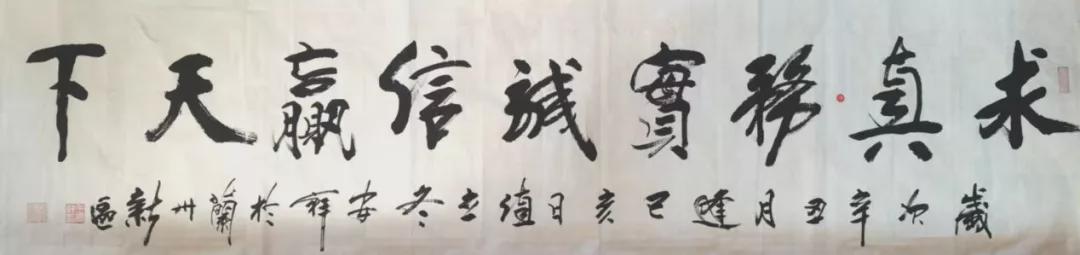 求真務實誠信贏天下
歲次辛丑月逢己亥日值立冬安祥於蘭州新區